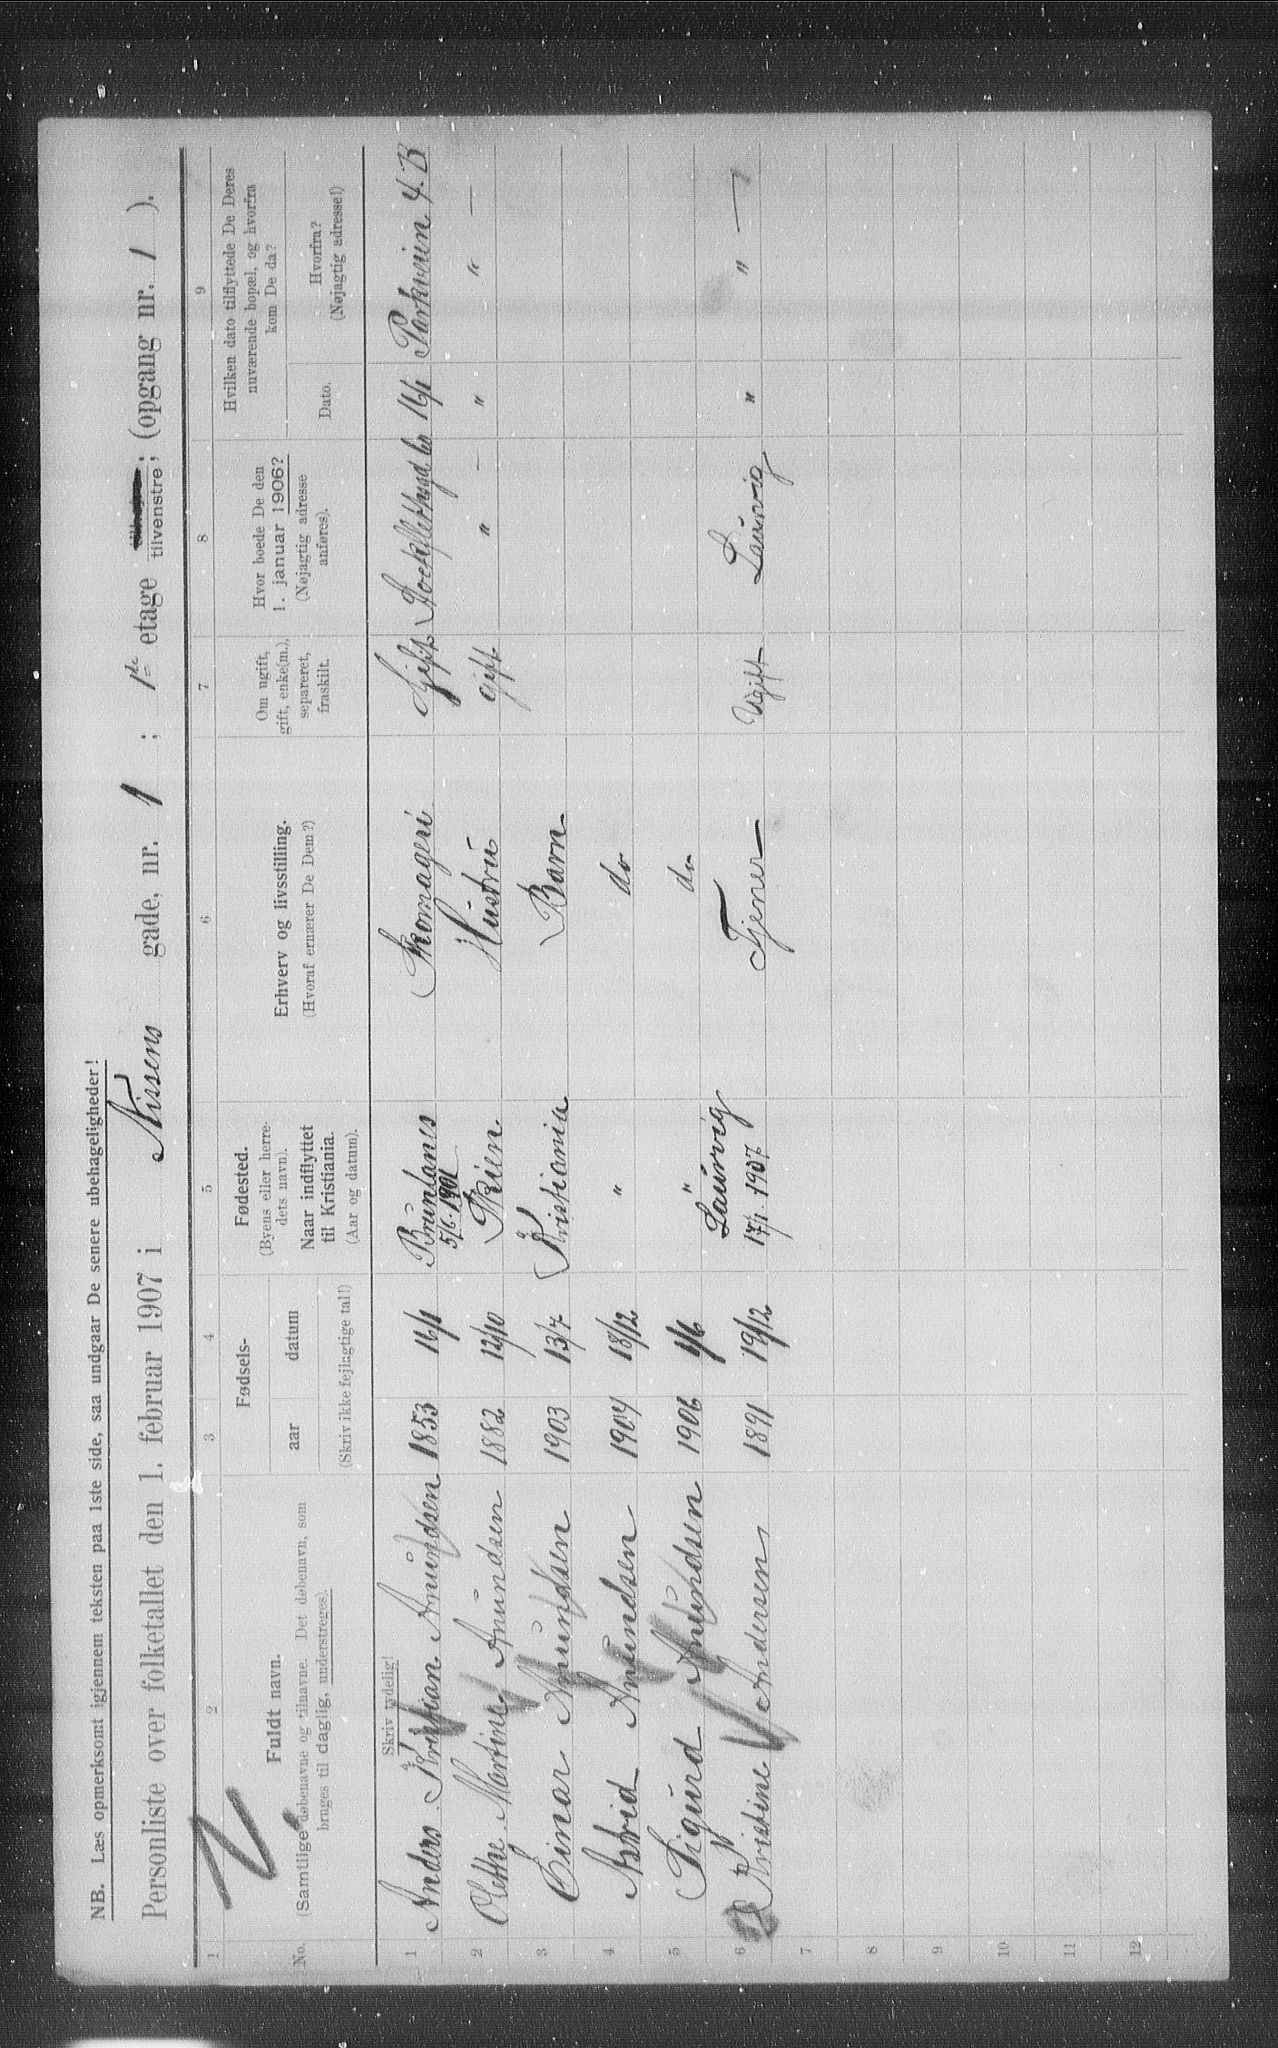 NB. Læs opmerksomt igjennem teksten paa 1ste side, saa undgaar De senere ubehageligheder!
Personliste over folketallet den 1. februar 1907 i Nissens gade, nr. 1 ; 1ste etage tilvenstre; (opgang nr. 1 ).
1 2 3 4 5 6 7 8 9
No. Fuldt navn. (Samtlige døbenavne og tilnavne. Det døbenavn, som bruges til daglig, understreges). Skriv tydelig!
Fødsels- aar datum (Skriv ikke fejlagtige tal!)
Fødested. (Byens eller herredets navn). Naar indflyttet til Kristiania. (Aar og datum).
Erhverv og livsstilling. (Hvoraf ernærer De Dem?)
Om ugift, gift, enke(m.), separeret, fraskilt.
Hvor boede De den 1. januar 1906? (Nøjagtig adresse anføres).
Hvilken dato tilflyttede De Deres nuværende bopæl, og hvorfra kom De da?
Dato. Hvorfra? (Nøjagtig adresse!)
1 Anders Kristian Amundsen 1853 16/1 Brunlanes 5/6 1901 Skomageri Gift 16/1 Parkveien 4. B
2 Olethe Martine Amundsen 1882 12/10 Skien Hustru gift " — " " —
3 Einar Amundsen 1903 13/7 Kristiania Barn
4 Astrid Amundsen 1904 18/12 " do
5 Sigurd Amundsen 1906 /6 " do
6 Kristine Andersen 1891 19/12 Laurvig 17/1. 1907 Tjener Ugift Laurvig " " —
7
8
9
10
11
12